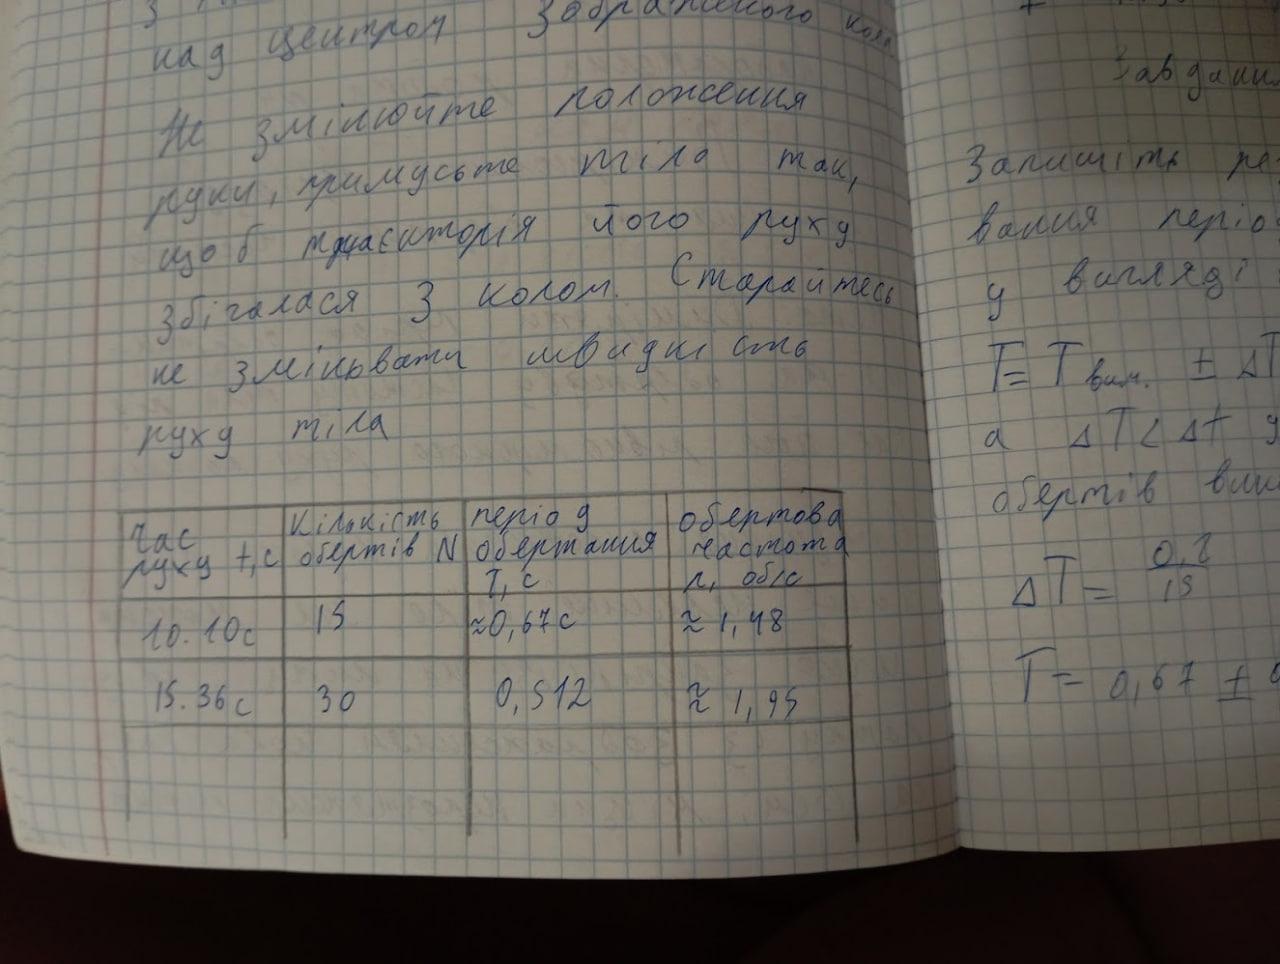 над центром зображеного кола
Не змінюйте положення
руки, примусьте тіло так,
щоб траєкторія його руху
збігалася з колом. Старайтесь
не змінювати швидкість
руху тіла
Час руху t, с
Кількість обертів N
період обертання T, с
обертова частота n, об/с
10.10с 15 ≈0,67с ≈ 1,48
15.36с 30 0,512 ≈ 1,95
Завдання
Запишіть
вання
у вигляді
T= T вим. ± ΔT
а ΔT < Δt
обертів
ΔT = 0,2/15
T= 0,67 ±